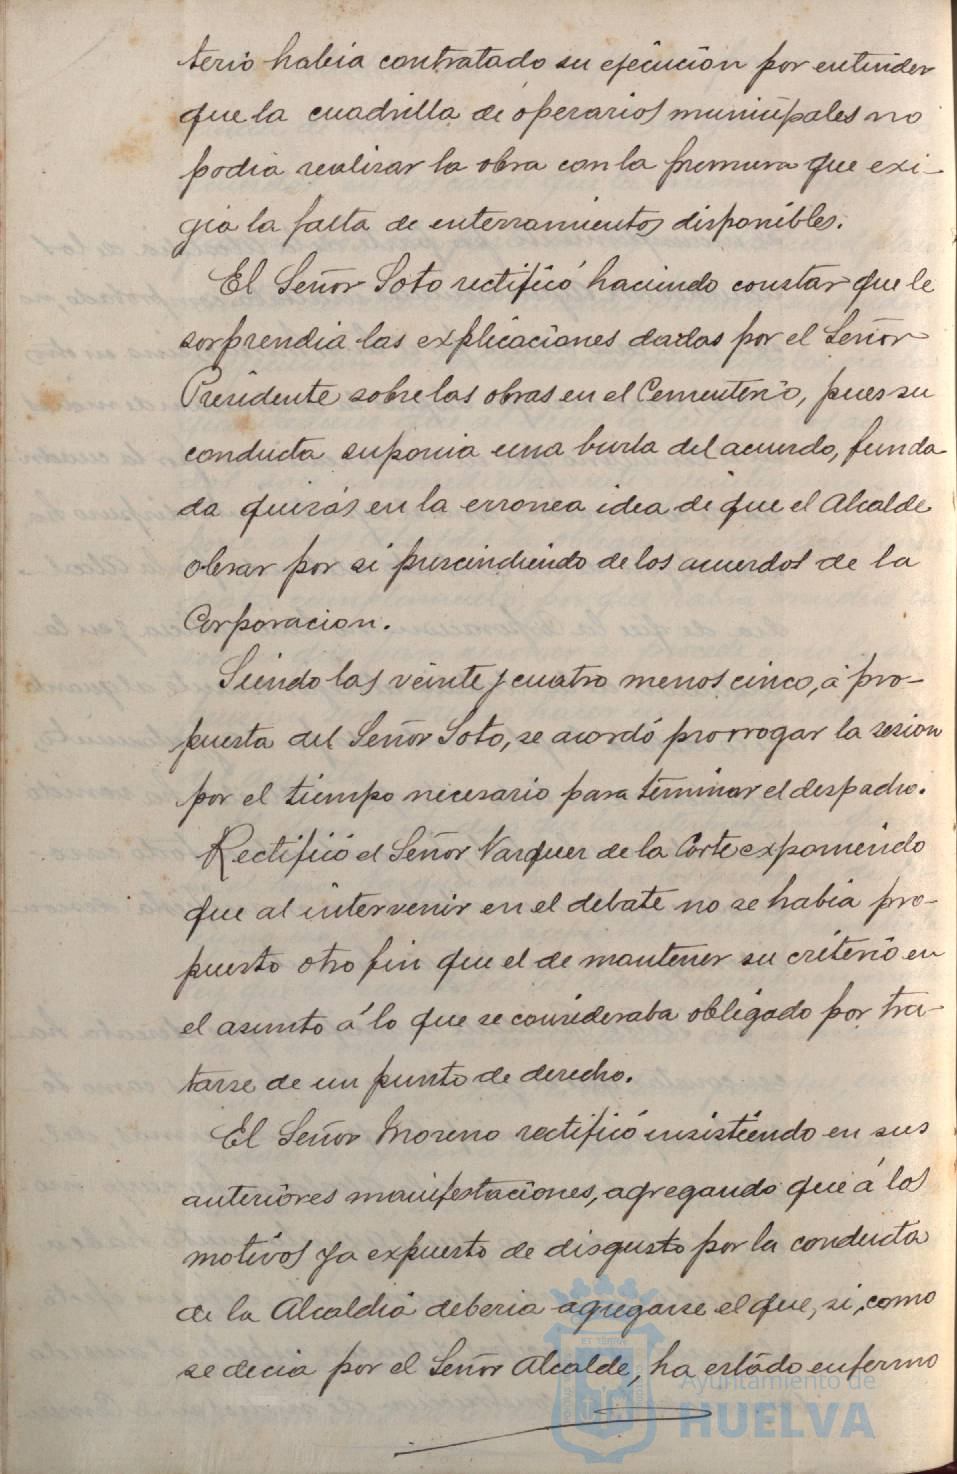 terio habia contratado su ejecución por entender
que la cuadrilla de operarios municipales no
podia realizar la obra con la premura que exi-
gia la falta de enterramientos disponibles.
El Señor Soto rectificó haciendo constar que le
sorprendia las explicaciones dadas por el Señor
Presidente sobre las obras en el Cementerio, pues su
conducta suponia una burla del acuerdo, funda-
da quizás en la erronea idea de que el Alcalde
obrar por si prescindiendo de los acuerdos de la
Corporacion.
Siendo las veinte y cuatro menos cinco, á pro-
puesta del Señor Soto, se acordó prorrogar la sesion
por el tiempo necesario para terminar el despacho.
Rectificó el Señor Vazquez de la Corte exponiendo
que al intervenir en el debate no se habia pro-
puesto otro fin que el de mantener su criterio en
el asunto á lo que se consideraba obligado por tra-
tarse de un punto de derecho.
El Señor Moreno rectificó insistiendo en sus
anteriores manifestaciones, agregando que á los
motivos ya expuesto de disgusto por la conducta
de la Alcaldia deberia agregarse el que, si, como
se decia por el Señor Alcalde, ha estado enfermo
Ayuntamiento de
HUELVA